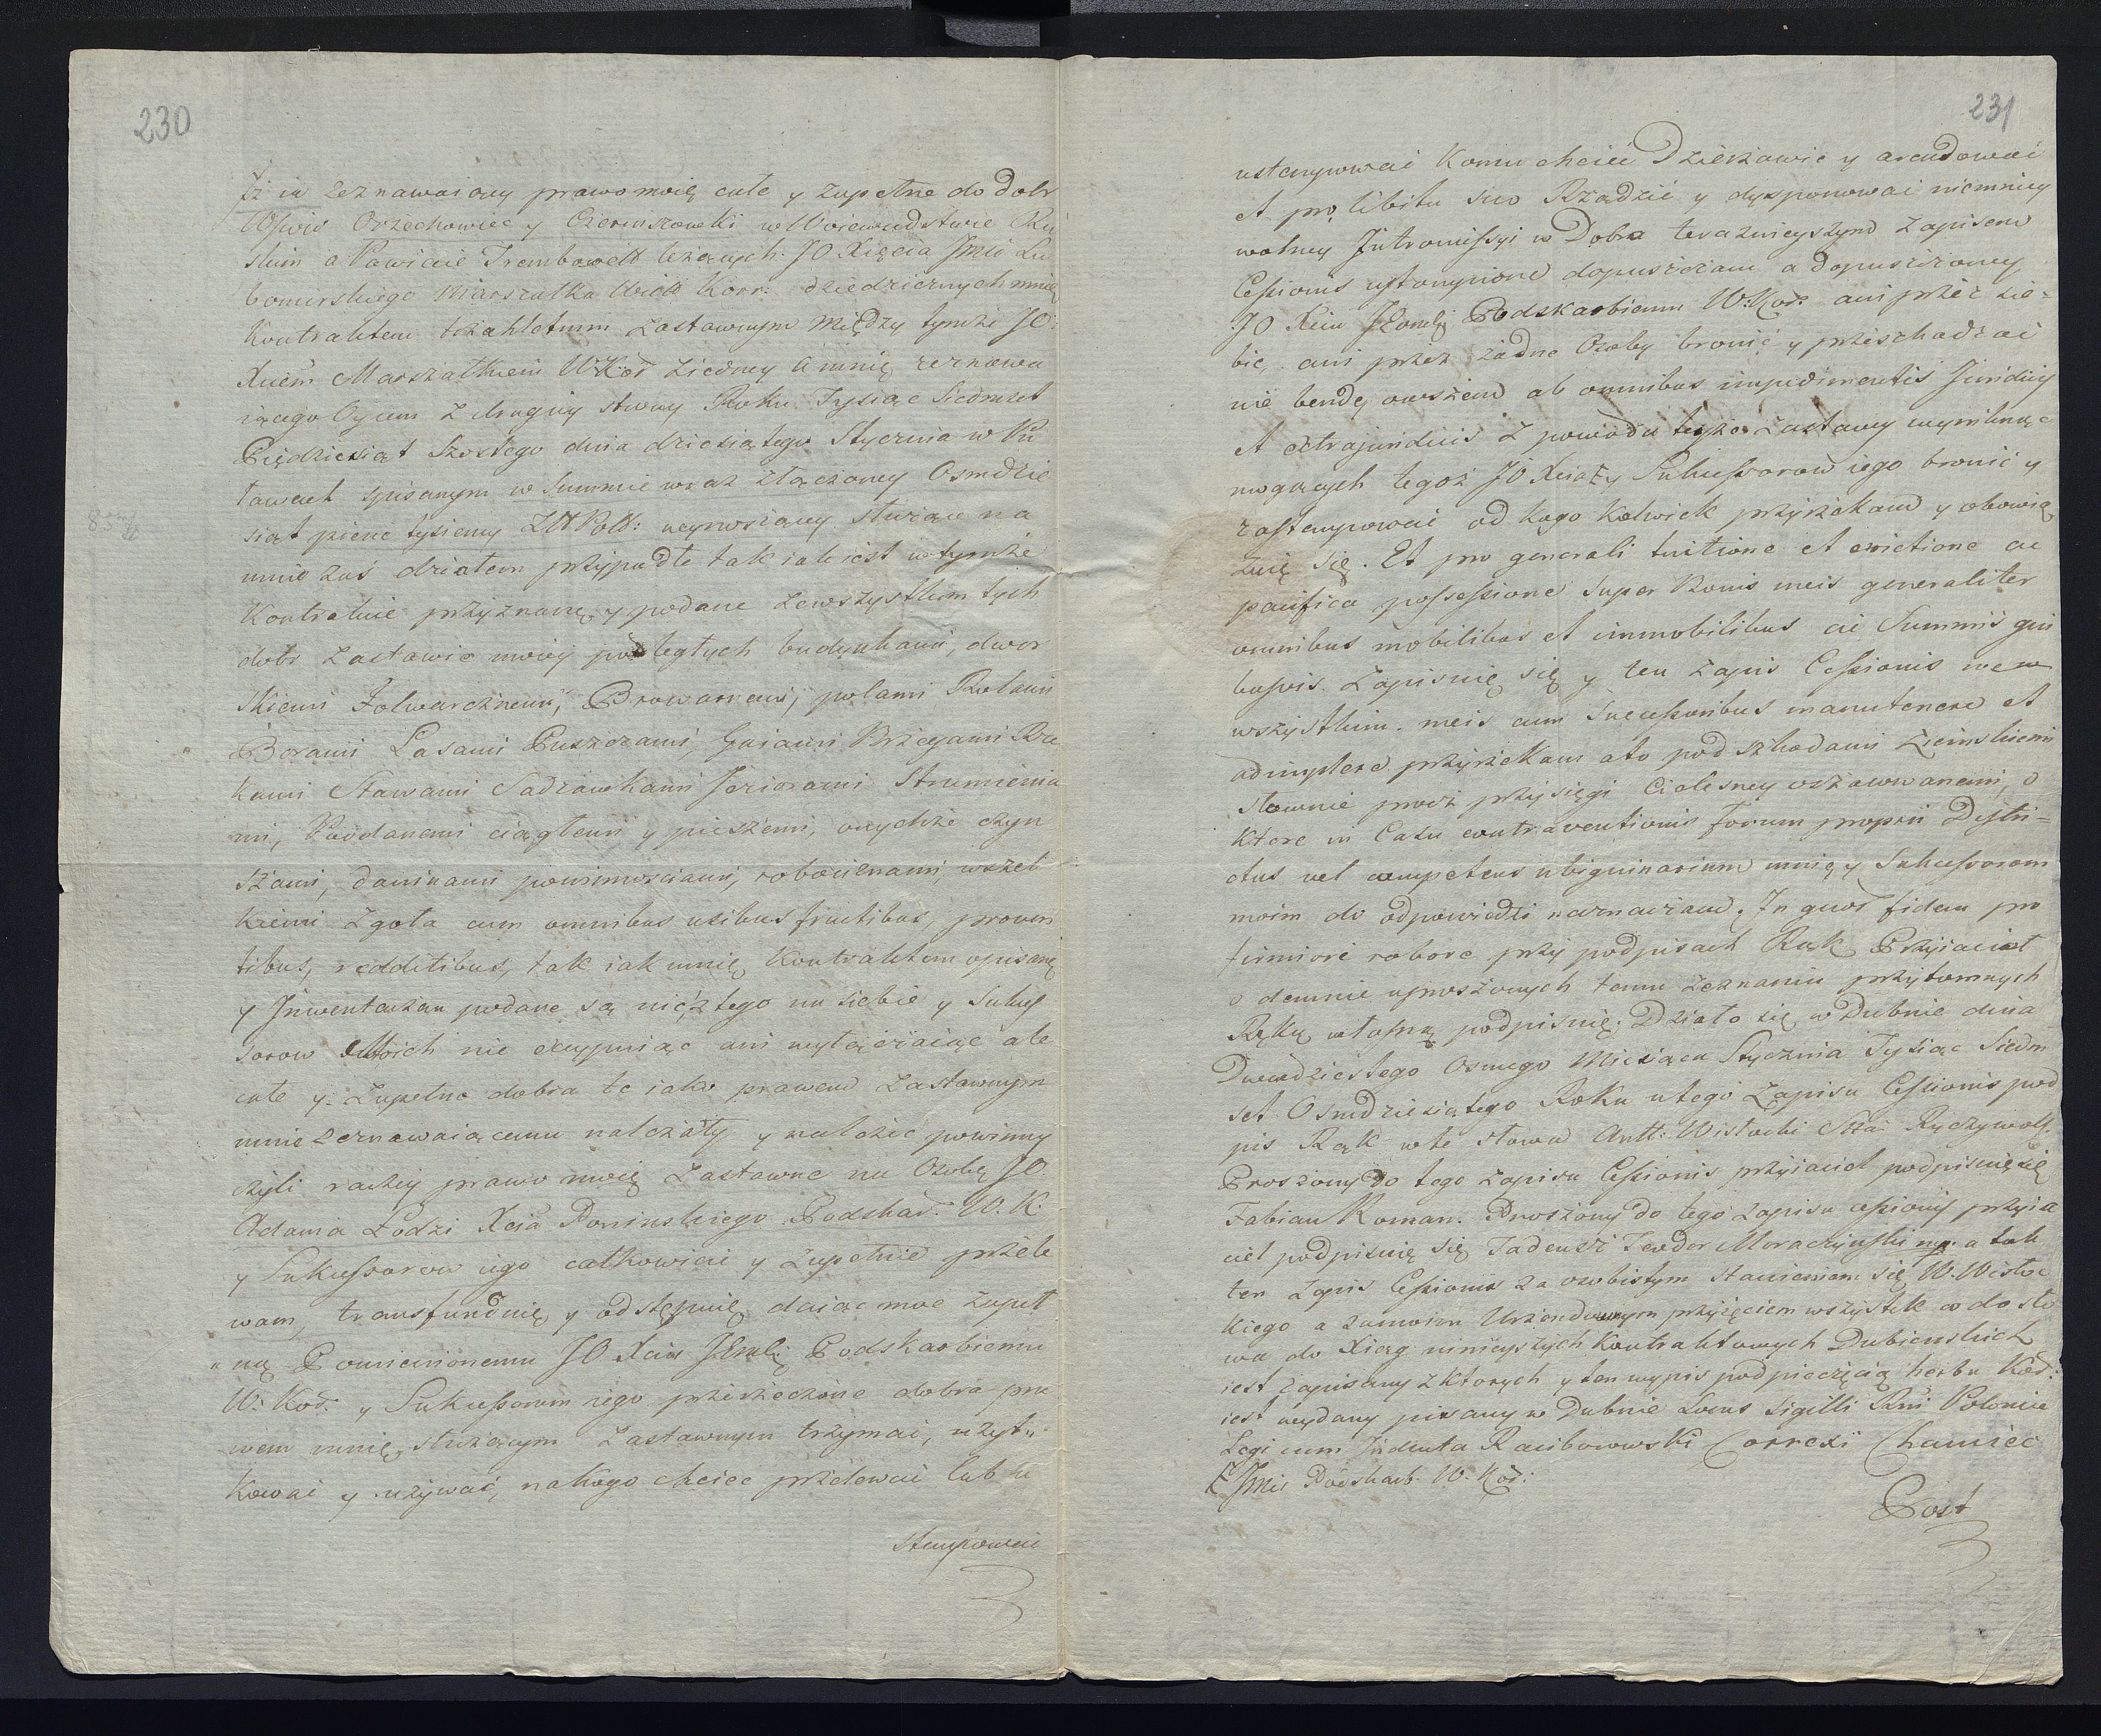 230
Iż ia zeznawaiący prawo moię całe y zupełne do dobr
Wsiow Orzechowiec y Czerniszowki w Woiewudstwie Ru
skim a Powiecie Trembowell leżących. JO Xięcia Jmci Lu
bomirskiego Marszałka Wiell Korr: dziedzicznych mnię
Kontraktem traktatum zastawnym między tymże JO
Xciem Marszałkiem WKor z iedney a mnię zeznawa
iącego Oycem z drugiey strony Roku Tysiąc Siedmset
Pięćdziesiąt Szostego dnia dziesiątego Stycznia w Pu
ławach spisanym w Summie wraz złączoney Osmdzie
siąt pienc tysiency Złt Poll: wynosząncy służące na
mnie zaś działem przypadłe tak iak iest w tymże
Kontrakcie przyznane, y podane zewszystkim tych
dobr zastawie moiey podległych budynkami, dwor
skiemi Folwarcznemi, Browarami, polami Rolami
Borami Lasami Puszczami, Gaiami Brzegami Rze
kami Stawami Sadzawkami Jeziorami Strumienia
mi, Poddanemi ciągłemi y pieszemi, onychże czyn
szami, daninami powinnosciami, robociznami, wszel
kiemi zgoła cum omnibus usibus fructibus, proven
tibus, redditibus, tak iak mnię Kontraktem opisane
y Inwentarzem podane są nic z tego na siebie y Sukces
sorow Moich nie excypuiąc ani wyłączaiąc ale
całe y zupełne dobra te iako prawem zastawnym
mnie zeznawaiącemu należały y należeć powinny
czyli raczey prawo moię zastawne na Osobę JO
Adama Łodzi Xcia Ponińskiego Podskar. W. K.
y Sukcessorow iego całkowicie y zupełnie przele
wam, transfunduię y odstępuię daiąc moc zupeł
ną Pomienionemu JO Xciu Jmci Podskarbiemu
W. Kor. y Sukcessorom iego przerzeczone dobra pra
wem mnię służącym zastawnym trzymać, użyt
kować y używać, na kogo chcieć przelewać lub u
stempować
231
ustempować Komu chcieć Dzierżawie y arendować
et pro libitu suo Rządzić y dysponować niemniey
wolney Intromissyi w Dobra teraznieyszym zapisem
Cessionis ustąnpione dopuszczam a dopuszczoney
JO Xciu Jmci Podskarbiemu W: Kor: ani przez sie-
bie, ani przez żadne Osoby bronić y przeszkadzać
nie bendę owszem ab omnibus impedimentis Juridicis
et extrajuridicis z powodu tegoż zastawy wyniknąć
mogących tegoż JO Xcia y Sukcessorow iego bronić y
zastempować od kogo kolwiek przyrzekam y obowią
zuię się. Et pro generali tuitione et evictione ac
pacifica possessione super Bonis meis generaliter
omnibus mobilibus et immobilibus ac Summis qui
busvis. Zapisuię się y ten zapis Cessionis we
wszystkim. meis cum Successoribus manutenere et
adimplere przyrzekam a to pod szkodami Ziemskiemi
słownie prosz przysięgi Cielesney oszacowanemi, o
ktore in Casu contraventionis forum proprii Distri-
ctus vel competens ubiquinarium mnię y Sukcessorom
moim do odpowiedzi naznaczam. In quod fidem pro
firmiori robore przy podpisach Rąk Przyiacioł
odemnie uproszonych temu zeznaniu przytomnych
Ręką własną podpisuię. Działo się w Dubnie dnia
Dwudziestego Osmego Miesiąca Stycznia Tysiąc Siedm
set Osmdziesiątego Roku u tego Zapisu Cessionis pod
pis Rąk w te słowa Antt: Wisłocki Stta Ryczywoll.
Proszony do tego zapisu Cessionis przyiaciel podpisuię się
Fabian Roman. Proszony do tego zapisu cessionis przyia
ciel podpisuię się Tadeusz Teodor Moraczynski mp. a tak
ten Zapis Cessionis za osobistym stawieniem się W. Wisłoc
kiego a zamoim Urzendownym przyięciem wszystek co do sło
wa do Xiąg ninieyszych Kontraktowych Dubienskich
iest zapisany z ktorych y ten wypis pod pieczęcią herbu Kor:
iest wydany pisany w Dubnie Locus Sigilli Rni Polonia
Legi cum Inducta Raciborowski Correxi Chamiec
Jmci Podskarb. W. Kor:
Post